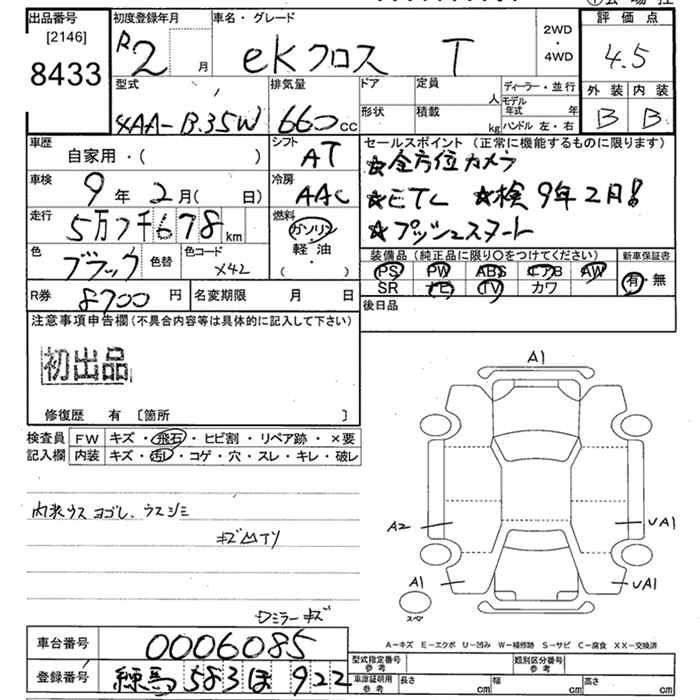 出品番号
[2146]
8433
初度登録年月
R2 月
車名・グレード
ekクロス T
2WD
・
4WD
評価点
4.5
外装 内装
B B
型式
4AA-B35W
排気量
660 cc
ドア
形状
定員 人
積載 kg
ディーラー・並行
モデル年式 年
ハンドル 左・右
車歴
自家用・( )
シフト
AT
車検
9年 2月( 日)
冷房
AAC
走行
5万7千678 km
燃料
ガソリン
軽・油
( )
色
ブラック
色替
色コード
X42
R券
8700 円
名変期限 月 日
セールスポイント (正常に機能するものに限ります)
☆全方位カメラ
☆ETC ☆検9年2月!
☆プッシュスタート
装備品 (純正品に限り○をつけてください)
PS PW ABS エアB AW
SR ナビ TV カワ
新車保証書
有・無
後日品
注意事項申告欄(不具合内容等は具体的に記入して下さい)
初出品
修復歴 有 [箇所 ]
検査員
記入欄
FW キズ・飛石・ヒビ割・リペア跡・×要
内装 キズ・汚レ・コゲ・穴・スレ・キレ・破レ
内装ウスヨゴレ、ウスシミ
キズ凹
ミラーキズ
A1
A2
UA1
A1
UA1
スペア
A-キズ E-エクボ U-凹み W-補修跡 S-サビ C-腐食 XX-交換済
車台番号
0006085
登録番号
練馬 583 ほ 922
型式指定番号
参考
類別区分番号
参考
車庫証明用
参考
長さ cm
幅 cm
高さ cm